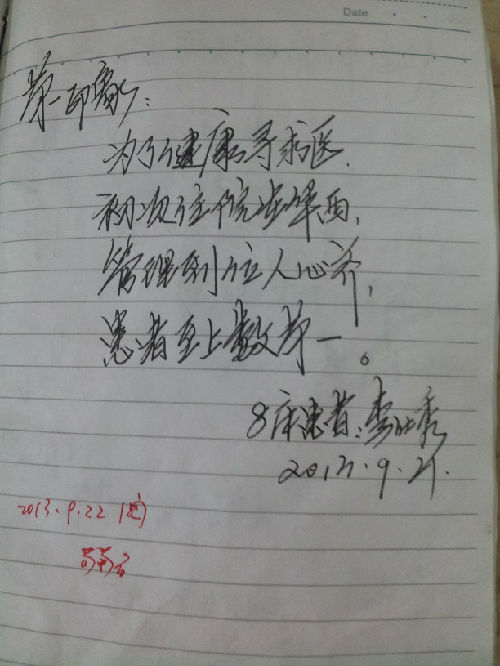 Date
第一印象：
为了健康寻求医，
初次住院在华西，
管理到位人心齐，
患者至上数第一。
8床患者：李
2013.9.21.
2013.9.22